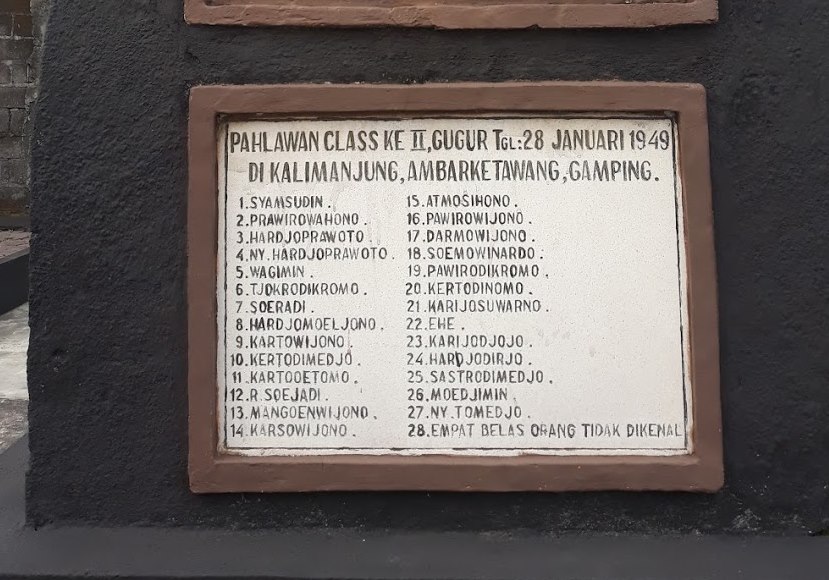 PAHLAWAN CLASS KE II, GUGUR TGL: 28 JANUARI 1949
DI KALIMANJUNG, AMBARKETAWANG, GAMPING.
1. SYAMSUDIN.
2. PRAWIROWAHONO.
3. HARDJOPRAWOTO.
4. NY. HARDJOPRAWOTO.
5. WAGIMIN.
6. TJOKRODIKROMO.
7. SOERADI.
8. HARDJOMOELJONO.
9. KARTOWIJONO.
10. KERTODIMEDJO.
11. KARTOOETOMO.
12. R. SOEJADI.
13. MANGOENWIJONO.
14. KARSOWIJONO.
15. ATMOSIHONO.
16. PAWIROWIJONO.
17. DARMOWIJONO.
18. SOEMOWINARDO.
19. PAWIRODIKROMO.
20. KERTODINOMO.
21. KARIJOSUWARNO.
22. EHE.
23. KARIJODJOJO.
24. HARDJODIRJO.
25. SASTRODIMEDJO.
26. MOEDJIMIN.
27. NY. TOMEDJO.
28. EMPAT BELAS ORANG TIDAK DIKENAL